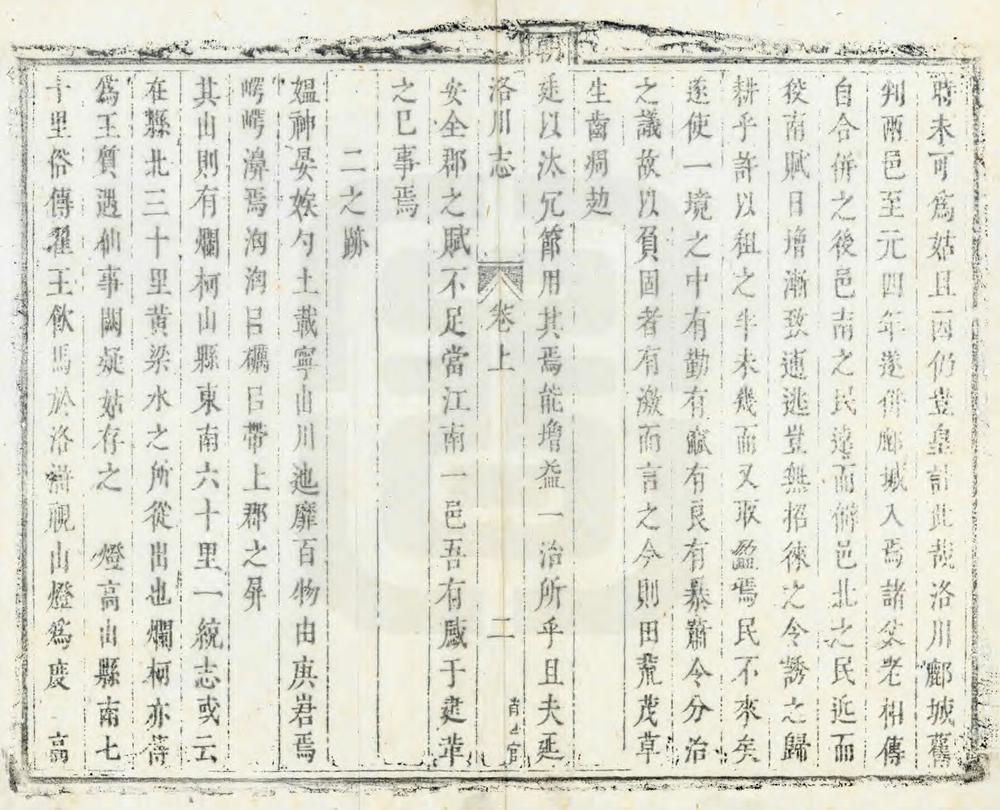 時未可爲姑且因仍豈皇計此哉洛川鄜城舊
判兩邑至元四年遂併鄜城入焉諸父老相傳
自合併之後邑南之民遠而僻邑北之民近而
役南賦日增漸致逋逃豈無招徠之令誘之歸
耕乎許以租之半未幾而又取盈焉民不來矣
遂使一境之中有勤有窳有良有暴蕭令分治
之議故以負固者有激而言之今則田荒茂草
生齒凋
朝
廷以汰冗節用其焉能增益一治所乎且夫延
洛川志 卷上 二
安全郡之賦不足當江南一邑吾有感于建革
之已事焉
二之跡
媼神晏娭勺土載寧山川迤靡百物由庚君焉
崿崿瀞焉洶洶吕礪吕帶上郡之屏
其山則有爛柯山縣東南六十里一統志或云
在縣北三十里黄梁水之所從出也爛柯亦傳
爲王質遇仙事闕疑姑存之 燈高山縣南七
十里俗傳翟王飲馬於洛滸覩山燈爲度 高